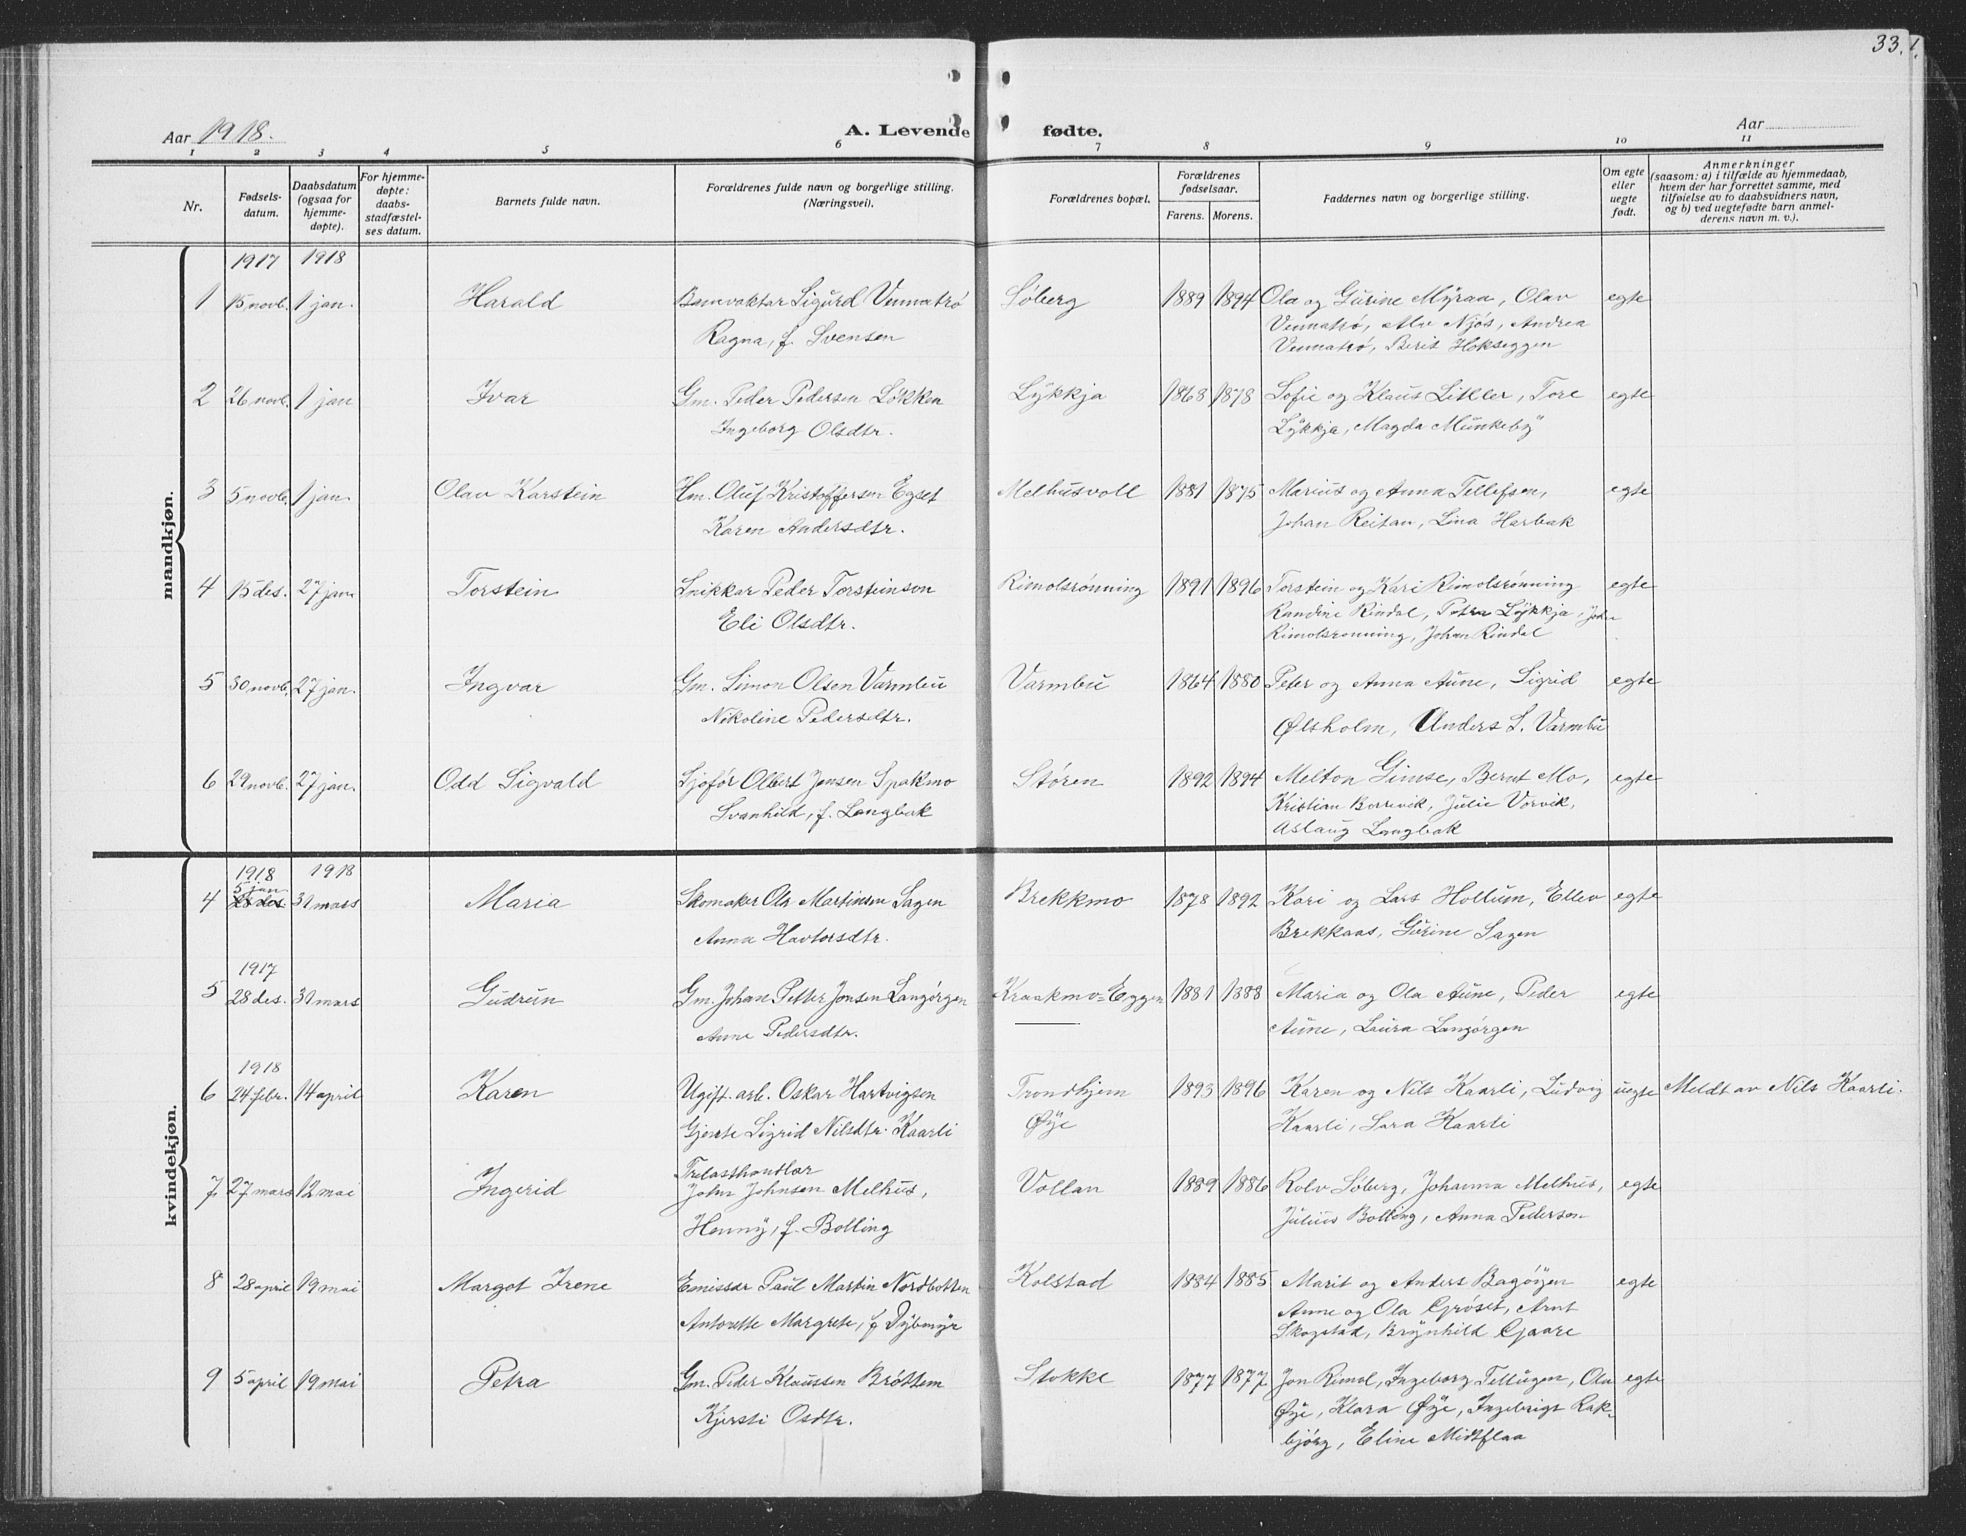 33.
Aar 1918.
A. Levende fødte.
Aar
1 2 3 4 5 6 7 8 9 10 11
Nr.
Fødsels-
datum.
Daabsdatum
(ogsaa for
hjemme-
døpte).
For hjemme-
døpte:
daabs-
stadfæstel-
ses datum.
Barnets fulde navn.
Forældrenes fulde navn og borgerlige stilling.
(Næringsvei).
Forældrenes bopæl.
Forældrenes
fødselsaar.
Farens. Morens.
Faddernes navn og borgerlige stilling.
Om egte
eller
uegte
født.
Anmerkninger
(saasom: a) i tilfælde av hjemmedaab,
hvem der har forrettet samme, med
tilføielse av to daabsvidners navn,
og b) ved uegtefødte barn anmel-
derens navn m. v.).
mandkjøn.
1917 1918
1 15 novb. 1 jan. Harald Banevoktar Sigurd Vennatrø Søberg 1889 1894 Ola og Gurine Myraa, Olav egte
Ragna, f. Svensen Vennatrø, Alv Njøs, Andrea
Vennatrø, Berit Hokseggen
2 26 novb. 1 jan Ivar Gm. Peder Pedersen Løkken Lykkja 1868 1878 Sofie og Klaus Litler, Tore egte
Ingeborg Olsdtr. Lykkja, Magda Munkeby
3 5 novb. 1 jan. Olav Karstein Hm. Oluf Kristoffersen Egset Melhusvoll 1881 1875 Marius og Anna Tellefsen, egte
Karen Andersdtr. Johan Reitan, Lina Harbak
4 15 des. 27 jan. Torstein Snikkar Peder Torsteinson Rimolsrønning 1891 1896 Torstein og Kari Rimolsrønning egte
Eli Olsdtr. Randine Rindal, Petra Lykkja, John
Rimolsrønning, Johan Rindal
5 30 novb. 27 jan. Ingvar Gm. Simon Olsen Varmbu Varmbu 1864 1880 Peter og Anna Aune, Sigrid egte
Nikoline Pedersdtr. Ølsholm, Anders S. Varmbu
6 29 novb. 27 jan. Odd Sigvald Sjofør Olbert Jensen Spakmo Støren 1892 1894 Melton Gimse, Bernt Mo, egte
Svanhild, f. Langbak Kristian Berrevik, Julie Vorvik,
Aslaug Langbak
kvindekjøn.
1918 1918
5 jan
4 28 des 31 mars Maria Skomaker Ola Martinsen Sagen Brekkmo 1878 1892 Kari og Lars Hollum, Ellev egte
Anna Havtorsdtr. Brekkaas, Gurine Sagen
1917
5 28 des. 31 mars Gudrun Gm. Johan Petter Jonsen Langørgen Kraakmo=Eggen 1881 1888 Maria og Ola Aune, Peder egte
Anne Pedersdtr. Aune, Laura Langørgen
1918
6 24 febr. 14 april Karen Ugift arb. Oskar Hartvigsen Trondhjem 1893 1896 Karen og Nils Kaarli, Ludvig uegte Meldt av Nils Kaarli.
Gjente Sigrid Nilsdtr. Kaarli Øye Kaarli, Sara Kaarli
Trelasthandlar
7 27 mars 12 mai Ingerid John Johnsen Melhus, Vollan 1889 1886 Rolv Søberg, Johanna Melhus, egte
Henny, f. Bolling Julius Bolling, Anna Pedersen
8 28 april 19 mai Margot Irene Emissær Paul Martin Nordbotten Kolstad 1884 1885 Marit og Anders Bagøyen egte
Antonette Margrete, f Dybmyr Anne og Ola Grøset, Arnt
Skogstad, Brynhild Gjaare
9 5 april 19 mai Petra Gm. Peder Klaussen Brøttem Stokke 1877 1877 Jon Rimol, Ingeborg Teltugen, Ola egte
Kjersti Osdtr. Øye, Klara Øye, Ingebrigt Rak-
bjørg, Eline Midtflaa